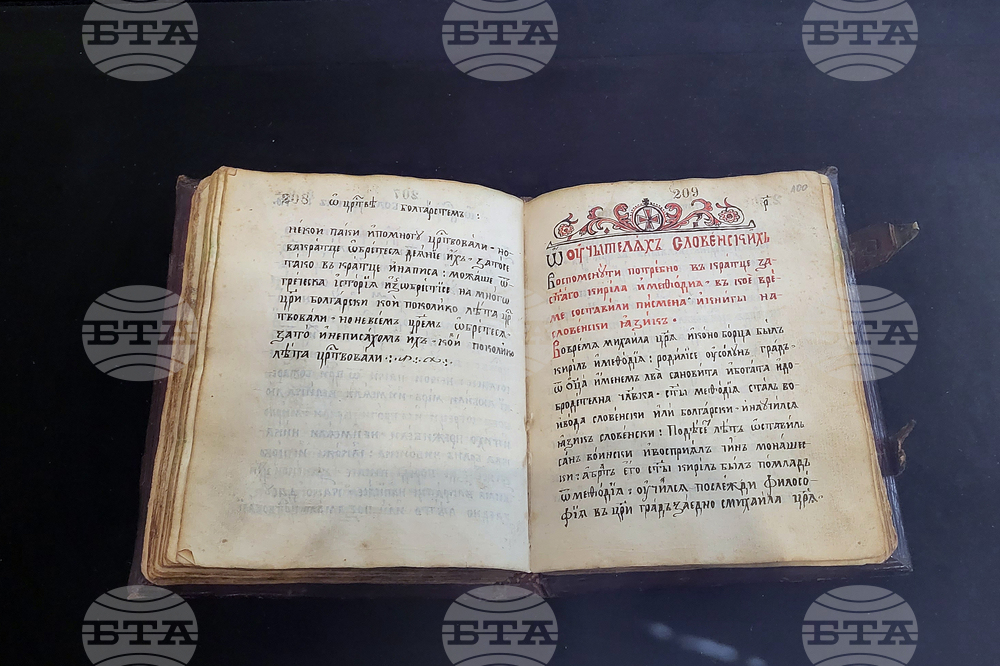 208 ѿ црⷭ҇твѣ болгарстемъ :
некои паки ипомногу црⷭ҇твовали · но
вакратце ѡбретеса деѧнїе ихъ · затосе
тако въ кратце инаписа : можаше ѿ
греческа їсторїѧ изѡбрестисе на многѡ
цр҃и болгарски кой поколико лѣта цр҃
твовали · ноневсем цр҃емъ ѡбретеса ·
зато инеписахомъ ихъ · кои поколико
лѣта црⷭ҇твовали :
209
100
р҃
Ѡ оучителѧхъ словенскихъ
Воспоменути потребно въ кратце за
ст҃аго кирила имеѳодїа · въ кое вре
ме составили писмена икниги на
словенски ꙗзикъ ·
Вовремѧ михаила цр҃ѧ иконо борца былъ
кирилъ имеѳодїа : родилисе оусолунъ градъ ·
ѿ ѡц҃а именемъ лва сановита ибогата идо
бродетелна чл҃вка · ст҃ы меѳодїа сталъ во
ивода словенски или болгарски · инаучилсѧ
ꙗзикъ словенски : По лѣтъ ѡставилъ
санъ воински ивосприѧлъ чинъ монаше
ски : абратъ его ст҃ы кирилъ былъ помладъ
ѿ меѳодїа : оучилсѧ послежди филосо
фїѧ въ цр҃и градъ заедно смихаила цр҃ѧ ·
БТА
БТА
БТА
БТА
БТА
БТА
БТА
БТА
БТА